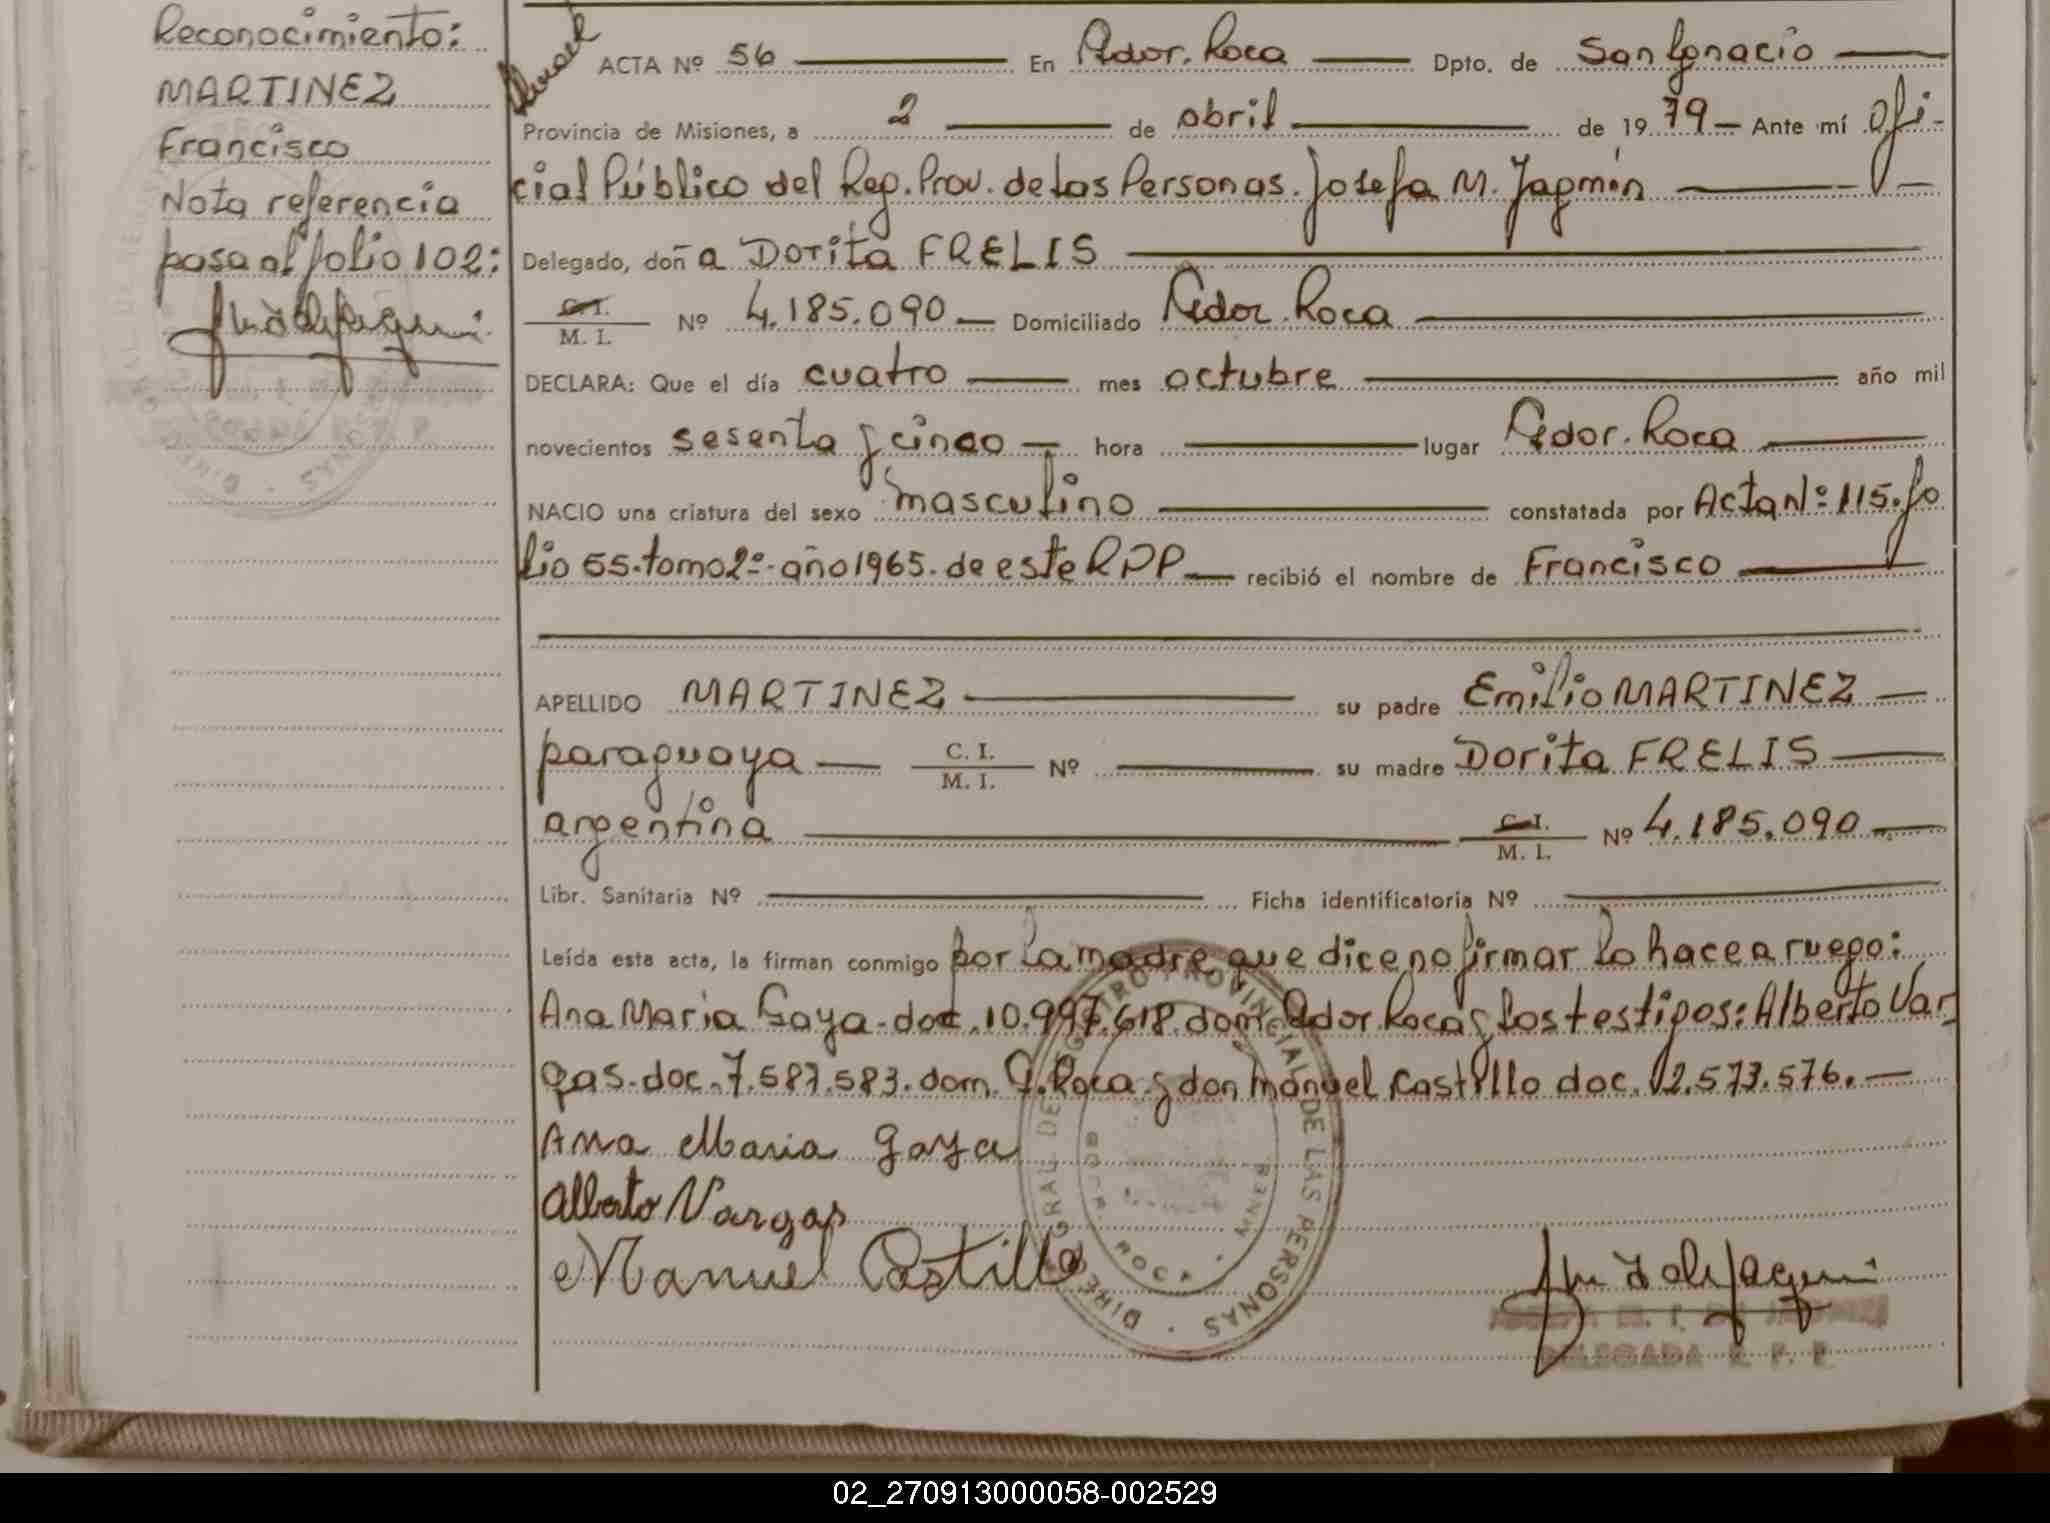 Reconocimiento:
MARTINEZ
Francisco
Nota referencia
pasa al folio 102:
ACTA Nº 56 En Gdor. Roca Dpto. de San Ignacio
Provincia de Misiones, a 2 de abril de 19 79 Ante mí Ofi-
cial Público del Reg. Prov. de las Personas. Josefa M.
Delegado, doña Dorita FRELIS
C. I.
M. I. Nº 4.185.090 Domiciliado Gdor. Roca
DECLARA: Que el día cuatro mes octubre año mil
novecientos sesenta y cinco hora lugar Gdor. Roca
NACIO una criatura del sexo masculino constatada por Acta Nº 115. fo
lio 55. tomo 2º. año 1965. de este RPP recibió el nombre de Francisco
APELLIDO MARTINEZ su padre Emilio MARTINEZ
paraguaya C. I.
M. I. Nº su madre Dorita FRELIS
argentina C. I.
M. I. Nº 4.185.090
Libr. Sanitaria Nº Ficha identificatoria Nº
Leída esta acta, la firman conmigo por la madre que dice no firmar lo hace a ruego:
Ana Maria Gaya. doc. 10.997.618. dom. Gdor Roca y los testigos: Alberto Var-
gas. doc. 7.587.583. dom. G. Roca y don Manuel Castillo doc. 12.573.576.
Ana Maria Gaya
Alberto Vargas
Manuel Castillo
DIREC. GRAL DE REGISTRO PROVINCIAL DE LAS PERSONAS
GDOR. ROCA
DELEGADA R. P. P.
02_270913000058-002529